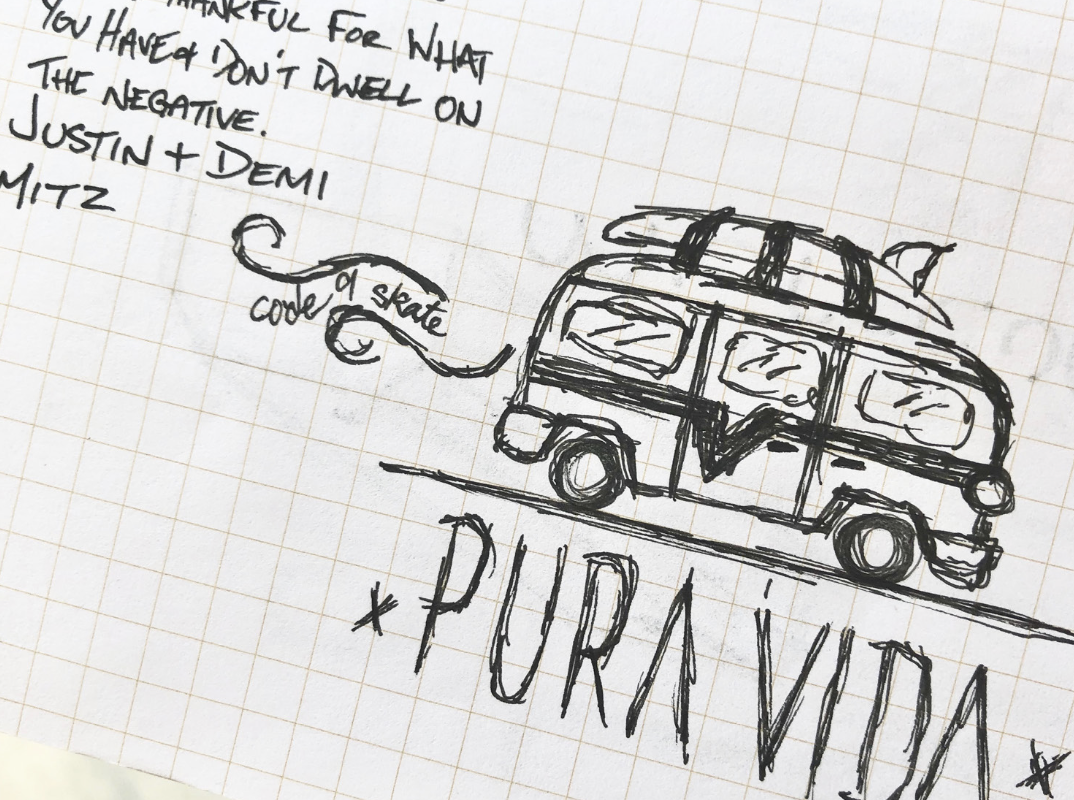 THANKFUL FOR WHAT
YOU HAVE & DON'T DWELL ON
THE NEGATIVE.
JUSTIN + DEMI
MITZ
code of skate
PURA VIDA